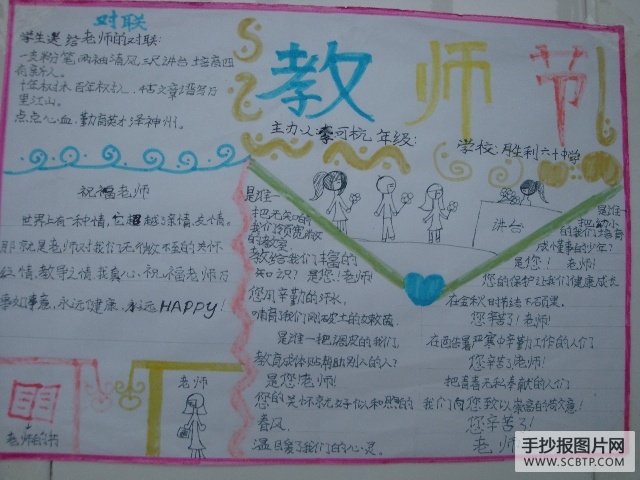 对联
学生送给老师的对联:
一支粉笔,两袖清风,三尺讲台
十年树木,百年树人
里江山。
点点心血,勤育英才泽神州。
教师节
主办人:李可杭 年级:
学校:胜利六十中学
祝福老师
世界上有一种情,它超越了亲情、友情。
那就是老师对我们无微不至的关怀
之情,教导之情。我真心祝福老师万
事如意,永远健康,永远HAPPY!
老师的书
老师
讲台
是谁—
把无知的
我们
的教室
教给我们丰富的
知识?是您!老师!
您用辛勤的汗水,
哺育了我们
是谁—把调皮的我们
教育成体贴帮助别人的人?
是您!老师!
您的关怀就好似和煦的
春风,
温暖了我们的心灵。
是谁—
把幼小
的我们培育
成懂事的少年?
是您!老师!
您的保护让我们健康成长
在金秋时节
您辛苦了!老师!
在酷暑严寒中辛勤工作的人们
您辛苦了!老师!
把青春无私奉献的人们
我们向您致以崇高的敬意!
您辛苦了!
老师
手抄报图片网
WWW.SCBTP.COM